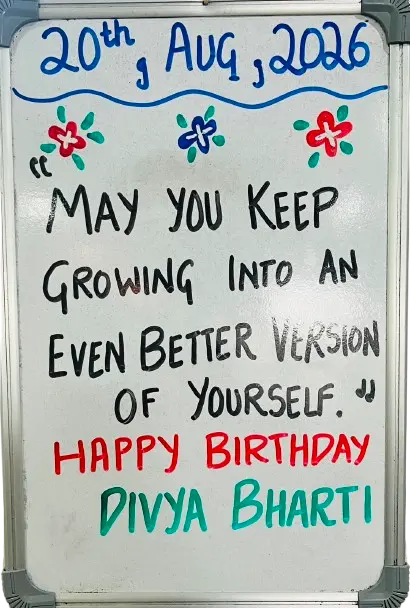 20th, AUG, 2026
"MAY YOU KEEP
GROWING INTO AN
EVEN BETTER VERSION
OF YOURSELF."
HAPPY BIRTHDAY
DIVYA BHARTI